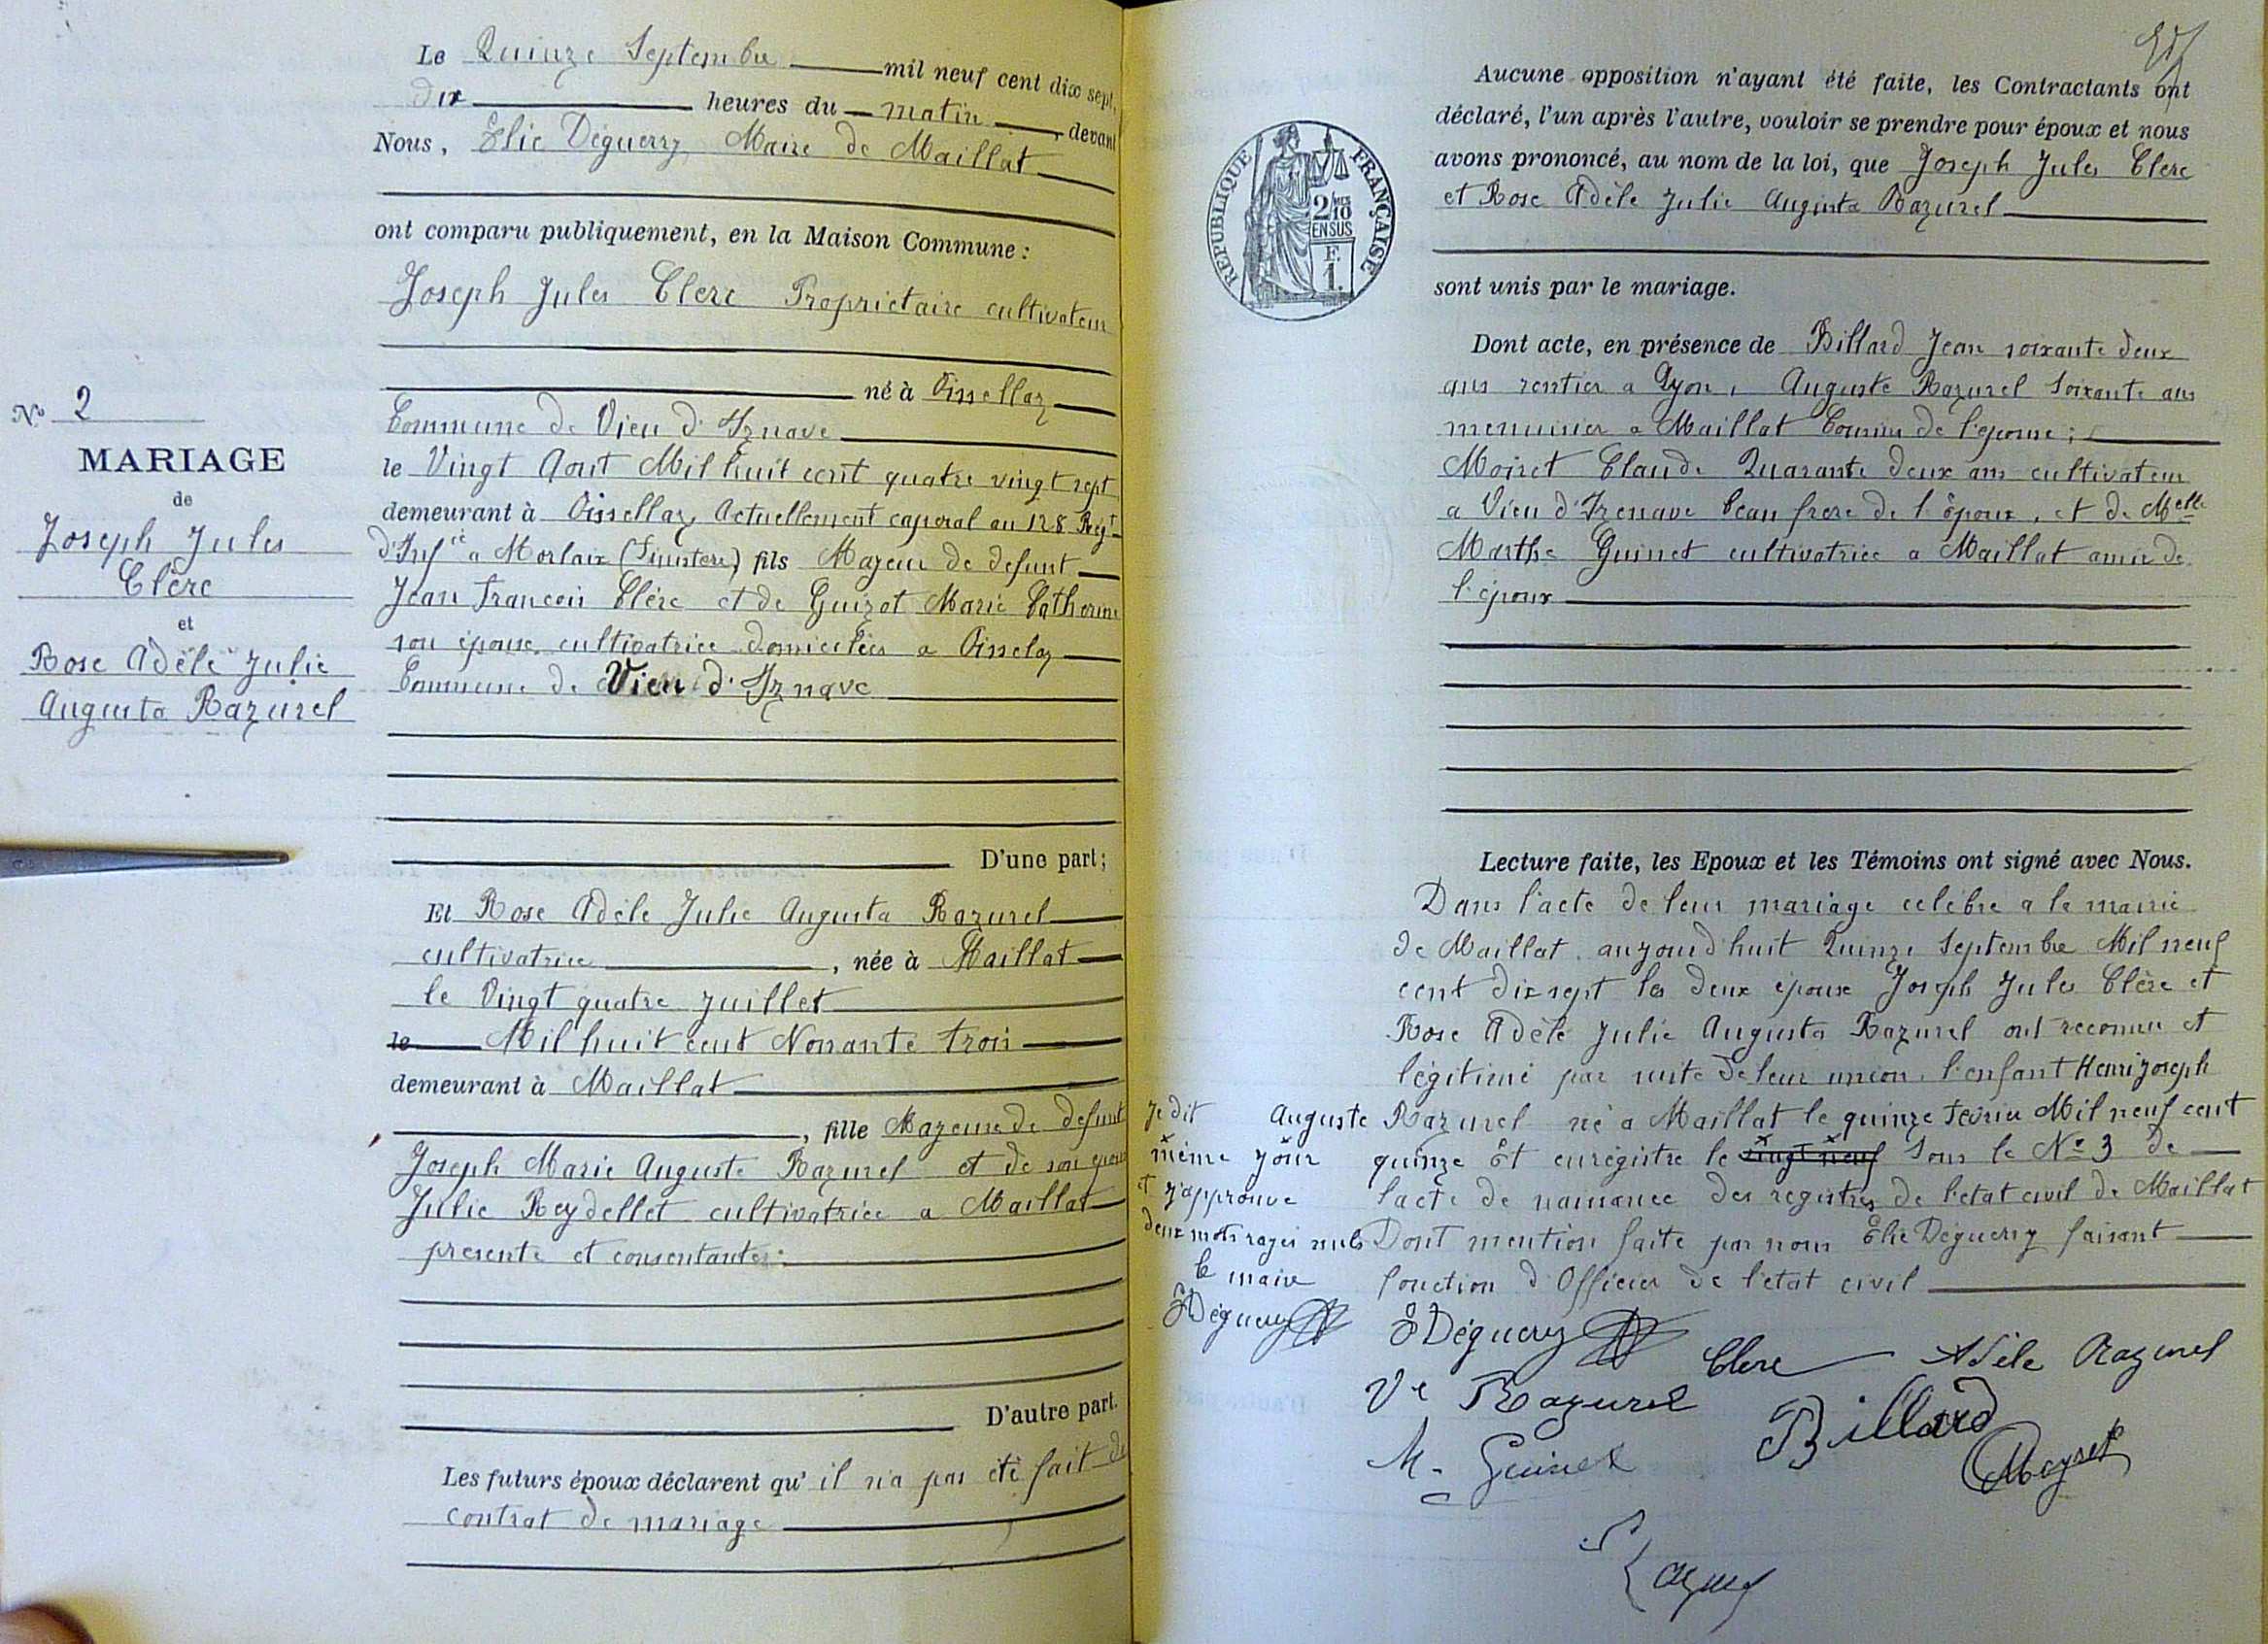 Le Quinze Septembre mil neuf cent dix sept,
dix heures du matin, devant
Nous, Elie Déguerry Maire de Maillat
ont comparu publiquement, en la Maison Commune :
Joseph Jules Clerc Propriétaire cultivateur
né à Oissellaz
Commune de Vieu d'Iznave
le Vingt Aout Mil huit cent quatre vingt sept
demeurant à Oissellaz, Actuellement caporal au 128 Regt
d'Infie a Morlaix (Finistere) fils Majeur de defunt
Jean Francois Clèrc et de Guizot Marie Catherine
son épouse cultivatrice domiciliée a Oisselaz
Commune de Vieu d'Iznave
D'une part;
No 2
MARIAGE
de
Joseph Jules
Clèrc
et
Rose Adèle Julie
Augusta Razurel
Et Rose Adèle Julie Augusta Razurel
cultivatrice, née à Maillat
le Vingt quatre Juillet
le Mil huit cent Nonante trois
demeurant à Maillat
, fille Majeure de defunt
Joseph Marie Auguste Razurel et de son épouse
Julie Reydellet cultivatrice a Maillat
presente et consentante:
D'autre part.
Les futurs époux déclarent qu'il n'a pas été fait de
contrat de mariage
Aucune opposition n'ayant été faite, les Contractants ont
déclaré, l'un après l'autre, vouloir se prendre pour époux et nous
avons prononcé, au nom de la loi, que Joseph Jules Clerc
et Rose Adèle Julie Augusta Razurel
sont unis par le mariage.
REPUBLIQUE FRANÇAISE
2/10
EN SUS
F.
1.
Dont acte, en présence de Billard Jean soixante deux
ans rentier a Lyon, Auguste Razurel Soixante ans
menuisier a Maillat Cousin de l'epouse;
Moiret Claude Quarante deux ans cultivateur
a Vieu d'Izenave beau frere de l'époux, et de Melle
Marthe Guinet cultivatrice a Maillat amie de
l'époux
Lecture faite, les Epoux et les Témoins ont signé avec Nous.
Dans l'acte de leur mariage celebre a la mairie
de Maillat, aujourd'huit Quinze Septembre Mil neuf
cent dix sept les deux époux Joseph Jules Clèrc et
Rose Adèle Julie Augusta Razurel ont reconnu et
légitimé par suite de leur union, l'enfant Henri Joseph
Auguste Razurel né a Maillat le quinze Fevrier Mil neuf cent
quinze Et enregistre le vingt neuf Sous le No 3 de
l'acte de naissance des registres de l'etat civil de Maillat
Dont mention faite par nous Elie Déguerry faisant
fonction d'Officier de l'état civil
Je dit
même jour
et j'approuve
deux mots rayés nuls
le maire
EDéguerry
EDéguerry
Clerc
Adèle Razurel
Ve Razurel
Billard
M. Guinet
Moyret